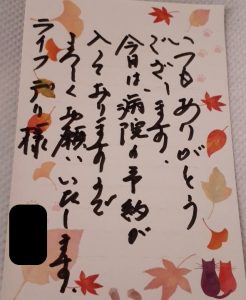 いつもありがとう
ございます。
今日は、病院の予約が
入っておりますので
よろしくお願いいたします。
ライフデリ様